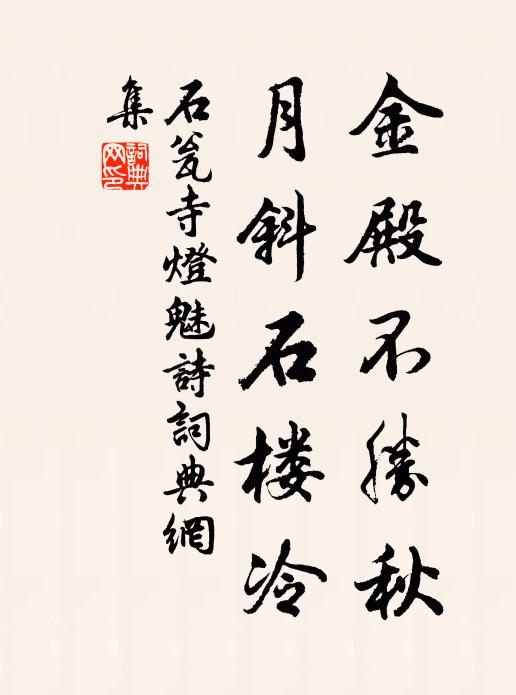 金殿不勝秋
月斜石楼冷
石瓮寺燈魅詩詞典網
集
詞典
网印